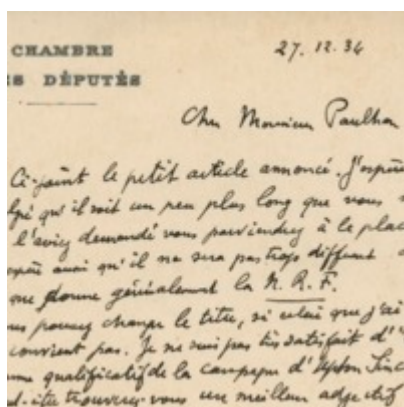 CHAMBRE
27.12.34
ES DÉPUTÉS
Cher Monsieur Paulhan
Ci-joint le petit article annoncé. J'espère
lgré qu'il soit un peu plus long que vous
l'aviez demandé vous parviendrez à le place
espère aussi qu'il ne sera pas trop différent
que donne généralement la N. R. F.
ous pouvez changer le titre, si celui que j'ai
convient pas. Je ne suis pas très satisfait d'
me qualificatif de la campagne d'Upton Sinc
t-être trouverez-vous un meilleur adjectif